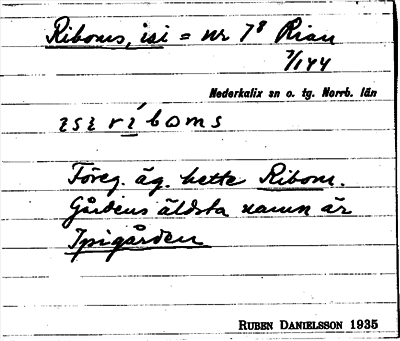 Riboms, isi = nr 7⁸ Rian
7/144
Nederkalix sn o. tg. Norrb. län
ɪsɪ rí b o m s
Föreg. äg. hette Ribom.
Gårdens äldsta namn är
Ipigården
RUBEN DANIELSSON 1935